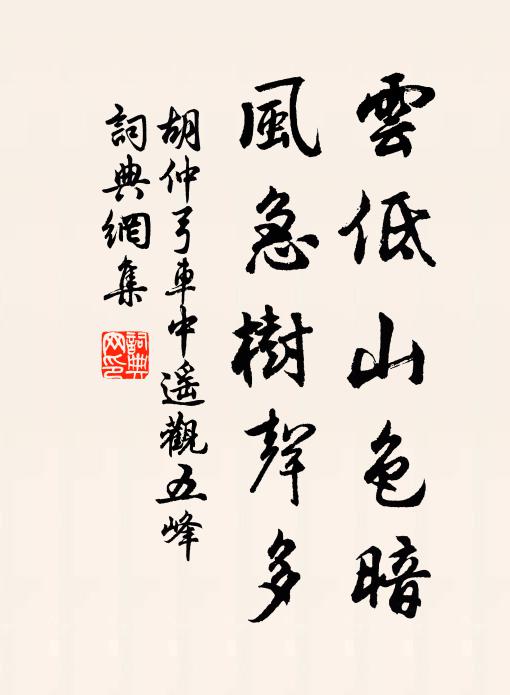 雲低山色暗
風急樹聲多
胡仲弓車中遥觀五峰
詞典網集
詞典網印